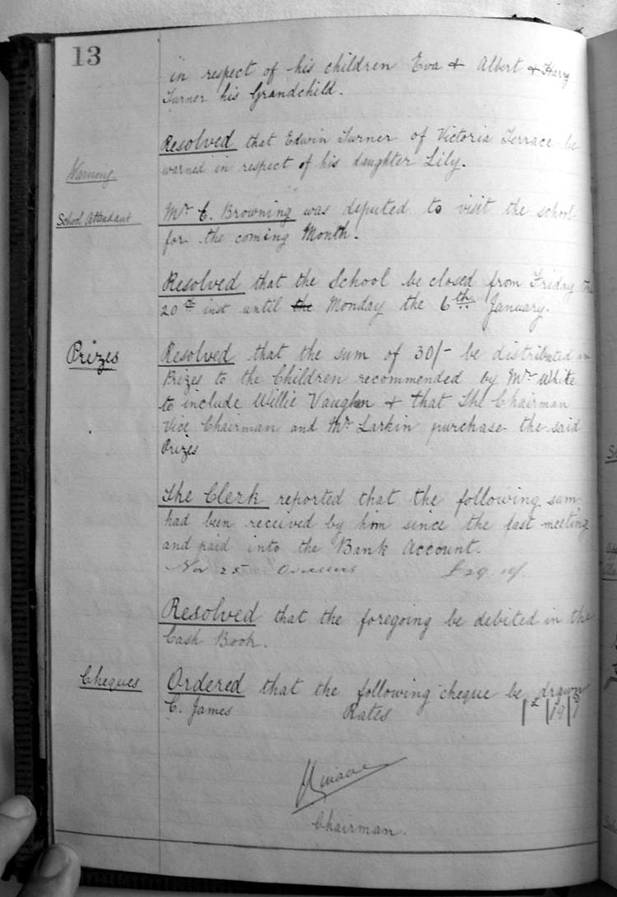 13
in respect of his children Eva & Albert & Harry
Turner his Grandchild.
Resolved that Edwin Turner of Victoria Terrace be
Warning
warned in respect of his daughter Lily.
School Attendant
Mr C. Browning was deputed to visit the school
for the coming Month.
Resolved that the School be closed from Friday the
20th inst until the Monday the 6th January.
Prizes
Resolved that the sum of 30/- be distributed in
Prizes to the Children recommended by Mr White
to include Willie Vaughn & that The Chairman
Vice Chairman and Mr Larkin purchase the said
Prizes
The Clerk reported that the following sum
had been received by him since the last meeting
and paid into the Bank Account.
Nov 25 Overseers £29
Resolved that the foregoing be debited in the
Cash Book.
Cheques
Ordered that the following cheque be drawn
C. James Rates 1 19 7
Chairman.